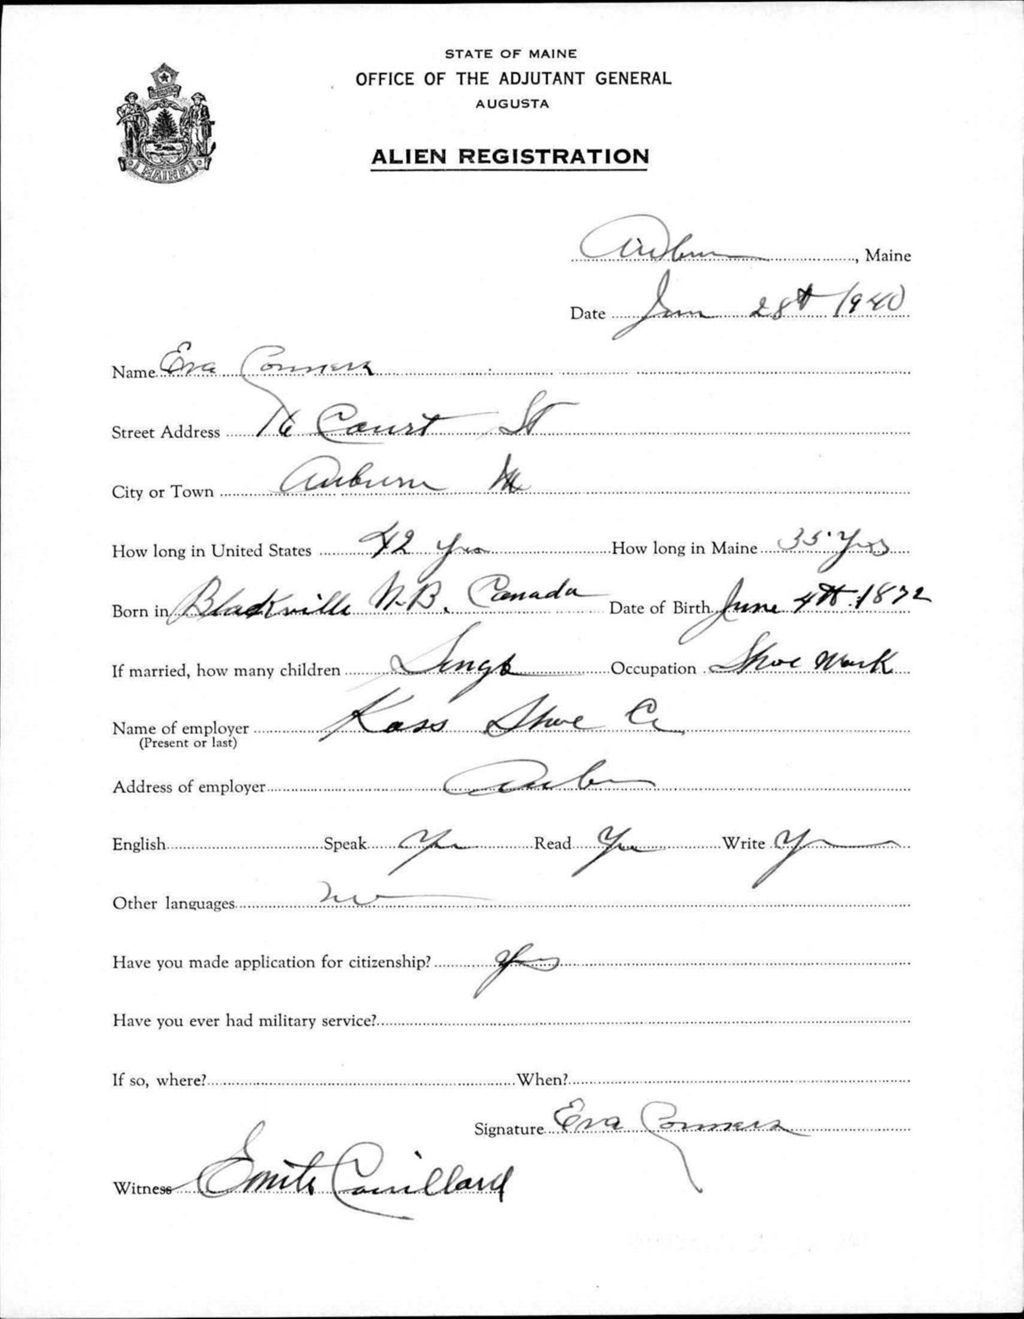 STATE OF MAINE
OFFICE OF THE ADJUTANT GENERAL
AUGUSTA
ALIEN REGISTRATION
MAINE
Auburn, Maine
Date June 28th 1940
Name Eva Conners
Street Address 76 Court St
City or Town Auburn Me
How long in United States 42 Yrs How long in Maine 35 Yrs
Born in Blackville N.B. Canada Date of Birth June 4th 1872
If married, how many children Single Occupation Shoe Work
Name of employer Kass Shoe Co
(Present or last)
Address of employer Auburn
English Speak Yes Read Yes Write Yes
Other languages No
Have you made application for citizenship? Yes
Have you ever had military service?
If so, where? When?
Signature Eva Conners
Witness Couillard